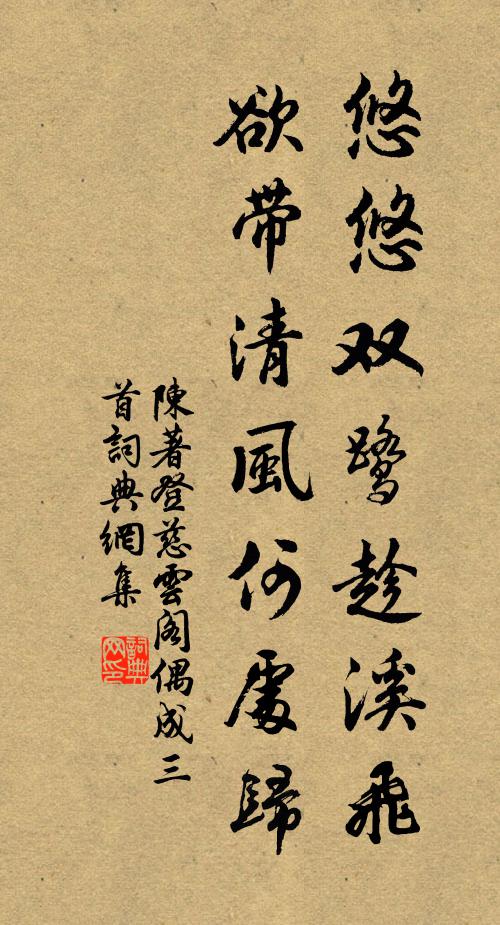 悠悠双鷺趁溪飛
欲帶清風何處歸
陳著登慈雲閣偶成三
首詞典網集
詞典
网印